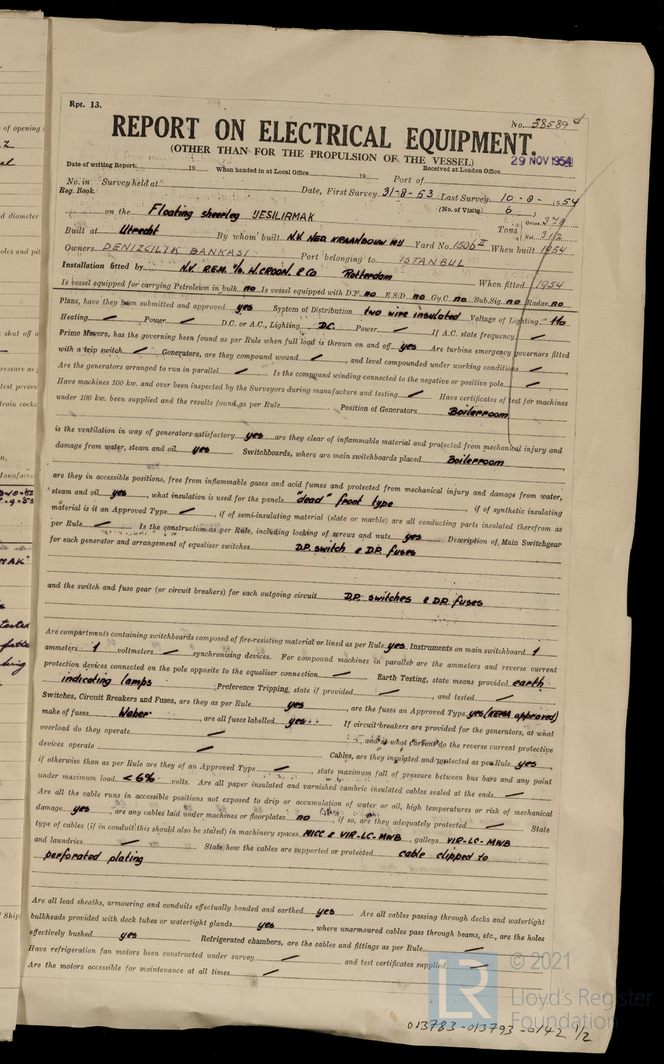 Rpt. 13.
No. 38589d
REPORT ON ELECTRICAL EQUIPMENT.
(OTHER THAN FOR THE PROPULSION OF THE VESSEL)
29 NOV 1954
Date of writing Report 19 When handed in at Local Office 19 Received at London Office
Port of
No. in Survey held at Date, First Survey 31-8-53 Last Survey 10-8-1954
Reg. Book. (No. of Visits 6 )
on the Floating sheerleg YESILIRMAK Tons Gross 378
Net 312
Built at Utrecht By whom built N.V. NED. KRAANBOUW MIJ Yard No. 1506 II When built 1954
Owners DENIZCILIK BANKASI Port belonging to ISTANBUL
Installation fitted by N.V. REM. v/h W. CROON & Co Rotterdam When fitted 1954
Is vessel equipped for carrying Petroleum in bulk no Is vessel equipped with D.F. no E.S.D. no Gy.C. no Sub.Sig. no Radar no
Plans, have they been submitted and approved yes System of Distribution two wire insulated Voltage of Lighting 110
Heating — Power — D.C. or A.C., Lighting D.C. Power — If A.C. state frequency —
Prime Movers, has the governing been found as per Rule when full load is thrown on and off yes Are turbine emergency governors fitted
with a trip switch — Generators, are they compound wound — , and level compounded under working conditions —
Are the generators arranged to run in parallel — Is the compound winding connected to the negative or positive pole —
Have machines 100 kw. and over been inspected by the Surveyors during manufacture and testing — Have certificates of test for machines
under 100 kw. been supplied and the results found as per Rule Position of Generators Boilerroom
is the ventilation in way of generators satisfactory yes are they clear of inflammable material and protected from mechanical injury and
damage from water, steam and oil yes Switchboards, where are main switchboards placed Boilerroom
are they in accessible positions, free from inflammable gases and acid fumes and protected from mechanical injury and damage from water,
steam and oil yes , what insulation is used for the panels "dead" front type , if of synthetic insulating
material is it an Approved Type — , if of semi-insulating material (slate or marble) are all conducting parts insulated therefrom as
per Rule — Is the construction as per Rule, including locking of screws and nuts yes Description of Main Switchgear
for each generator and arrangement of equaliser switches D.P. switch & D.P. fuses
and the switch and fuse gear (or circuit breakers) for each outgoing circuit D.P. switches & D.P. fuses
Are compartments containing switchboards composed of fire-resisting material or lined as per Rule yes Instruments on main switchboard 1
ammeters 1 voltmeters — synchronising devices. For compound machines in parallel are the ammeters and reverse current
protection devices connected on the pole opposite to the equaliser connection — Earth Testing, state means provided earth
indicating lamps Preference Tripping, state if provided — , and tested —
Switches, Circuit Breakers and Fuses, are they as per Rule yes , are the fuses an Approved Type yes (KEMA approved)
make of fuses Weber , are all fuses labelled yes If circuit-breakers are provided for the generators, at what
overload do they operate — , and at what current do the reverse current protective
devices operate — Cables, are they insulated and protected as per Rule yes
if otherwise than as per Rule are they of an Approved Type — , state maximum fall of pressure between bus bars and any point
under maximum load <6% volts. Are all paper insulated and varnished cambric insulated cables sealed at the ends —
Are all the cable runs in accessible positions not exposed to drip or accumulation of water or oil, high temperatures or risk of mechanical
damage yes , are any cables laid under machines or floorplates no , if so, are they adequately protected — State
type of cables (if in conduit this should also be stated) in machinery spaces MICC & VIR-LC-MWB , galleys VIR-LC-MWB
and laundries — State how the cables are supported or protected cable clipped to
perforated plating
Are all lead sheaths, armouring and conduits effectually bonded and earthed yes Are all cables passing through decks and watertight
bulkheads provided with deck tubes or watertight glands yes , where unarmoured cables pass through beams, etc., are the holes
effectively bushed yes Refrigerated chambers, are the cables and fittings as per Rule —
Have refrigeration fan motors been constructed under survey — and test certificates supplied —
Are the motors accessible for maintenance at all times —
LR
© 2021
Lloyd's Register
Foundation
013783-013793-0142 1/2